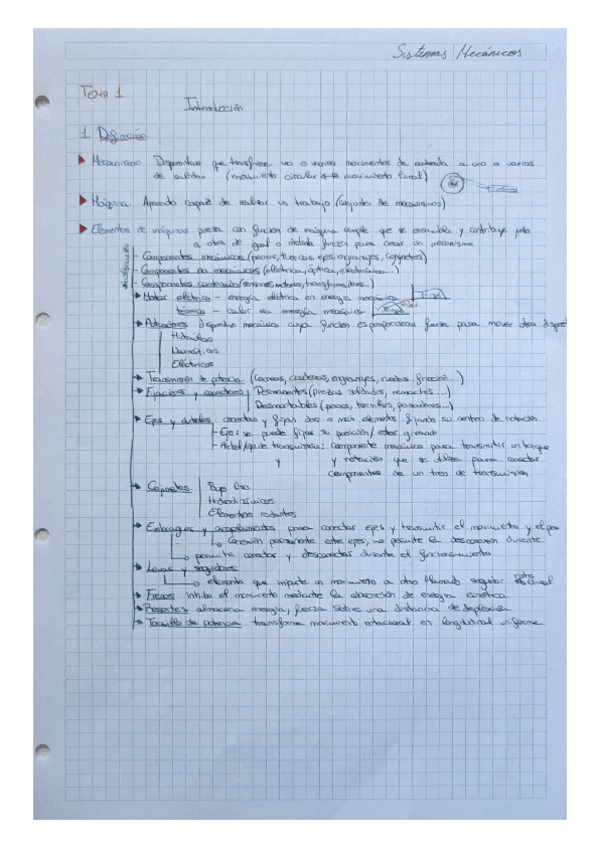 Sistemas Mecánicos
Tema 1
Introducción
1 Definición
Mecanismo Dispositivo que transfiere uno o varios movimientos de entrada a uno o varios
de salidas (movimiento circular ↔ movimiento lineal)
Máquina Aparato capaz de realizar un trabajo (conjunto de mecanismos)
Elementos de máquinas pieza con función de máquina simple que se ensambla y contribuye junto
a otra de igual o distinta función para crear un mecanismo
Componentes mecánicos (pernos, tuercas, ejes, engranajes, cojinetes)
Componentes no mecánicos (eléctrica, óptica, electrónica...)
Componentes (sensores, motores, transformadores...)
Motor eléctrico - energía eléctrica en energía mecánica
térmico - calor en energía mecánica
Actuadores dispositivo mecánico cuya función es proporcionar fuerza para mover otro
Hidráulicos
Neumáticos
Eléctricos
Transmisión de potencia (correas, cadenas, engranajes, ruedas fricción...)
Fijaciones y conexiones Permanentes (piezas soldadas, remaches...)
Desmontables (pernos, tornillos, pasadores...)
Ejes y árboles conectan y fijan dos o más elementos fijando su centro de rotación
Eje: se puede fijar su posición/ estar girando
Árbol/eje de transmisión: componente mecánico para transmitir un torque
y y rotación que se utiliza para conectar
componentes de un tren de transmisión
Cojinetes Buje liso
Hidrodinámicos
Elementos rodantes
Embragues y acoplamientos para conectar ejes y transmitir el movimiento y el par
Conexión permanente entre ejes, no permite la desconexión durante
permite conectar y desconectar durante el funcionamiento
Levas y seguidores
elemento que imparte un movimiento a otro llamado seguidor
Frenos inhibe el movimiento mediante la absorción de energía cinética
Resortes almacena energía, fuerza sobre una distancia de
Tornillo de potencia transforma movimiento rotacional en longitudinal uniforme